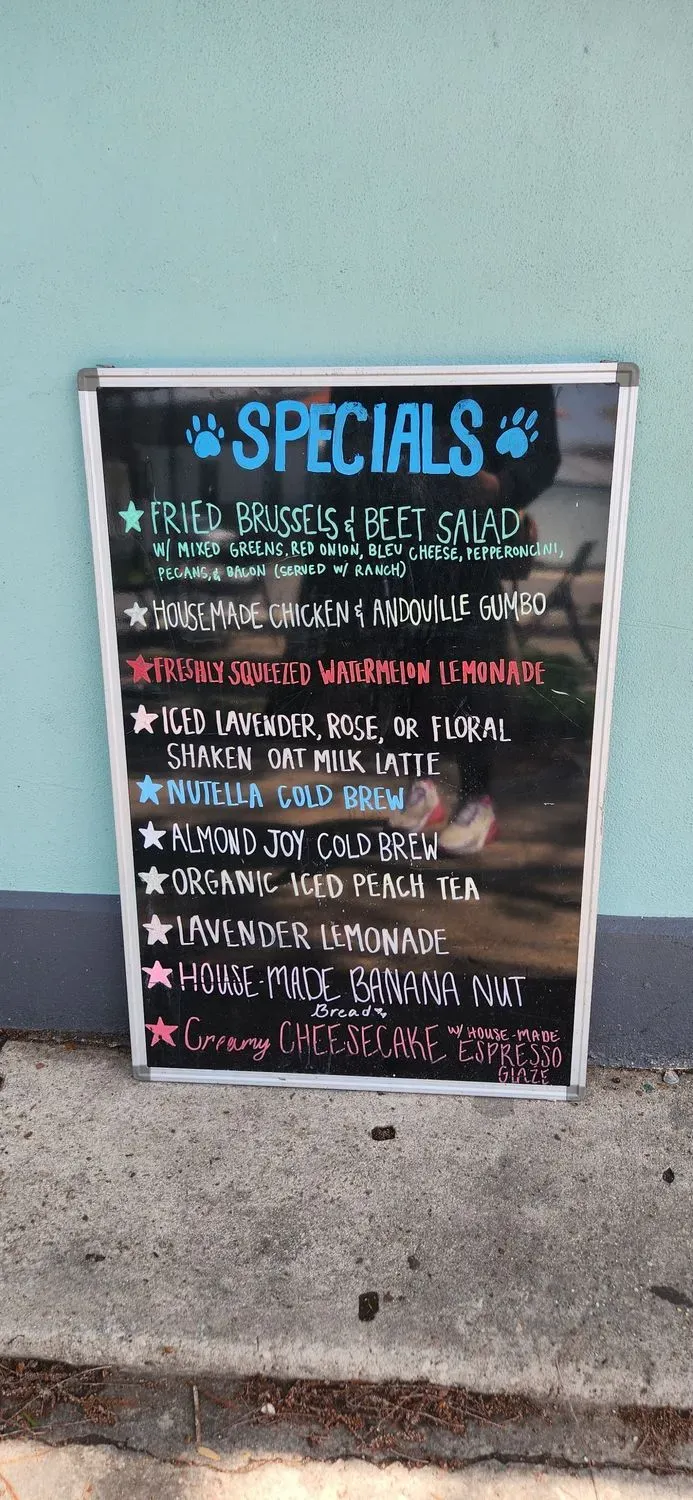 SPECIALS
FRIED BRUSSELS & BEET SALAD
W/ MIXED GREENS, RED ONION, BLEU CHEESE, PEPPERONCINI,
PECANS, & BACON (SERVED W/ RANCH)
HOUSEMADE CHICKEN & ANDOUILLE GUMBO
FRESHLY SQUEEZED WATERMELON LEMONADE
ICED LAVENDER, ROSE, OR FLORAL
SHAKEN OAT MILK LATTE
NUTELLA COLD BREW
ALMOND JOY COLD BREW
ORGANIC ICED PEACH TEA
LAVENDER LEMONADE
HOUSE-MADE BANANA NUT
Bread
Creamy CHEESECAKE W/ HOUSE-MADE
ESPRESSO
GLAZE